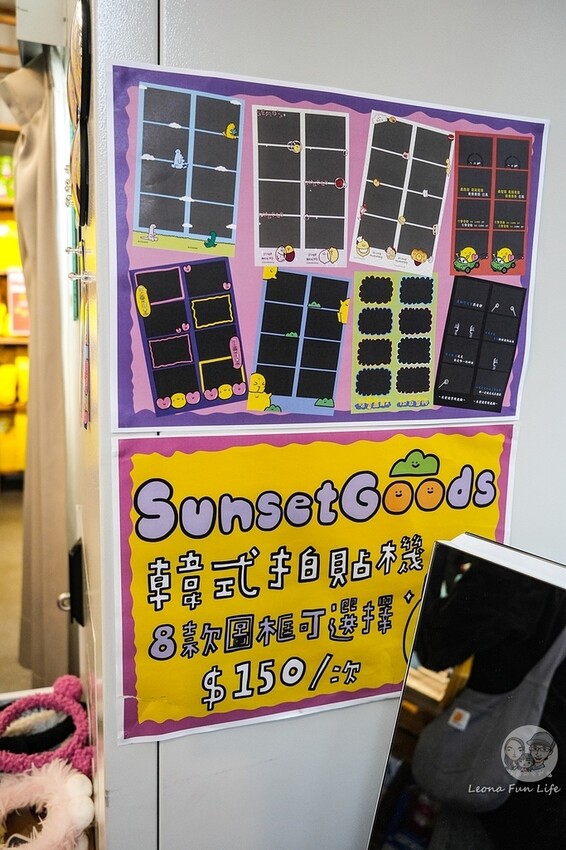 SunsetGoods
韓式拍貼機
8款圖框可選擇
$150/次
Leona Fun Life